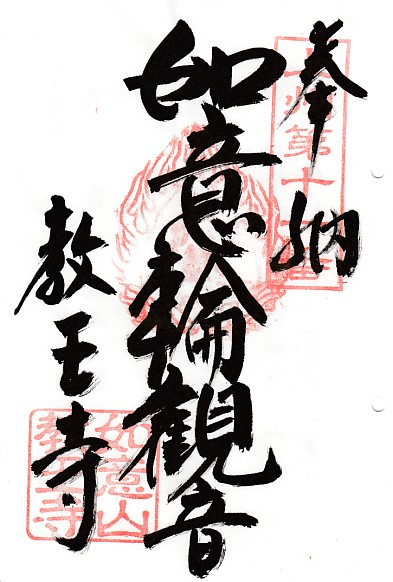 奉納
如意輪観音
教王寺
如意山
教王寺